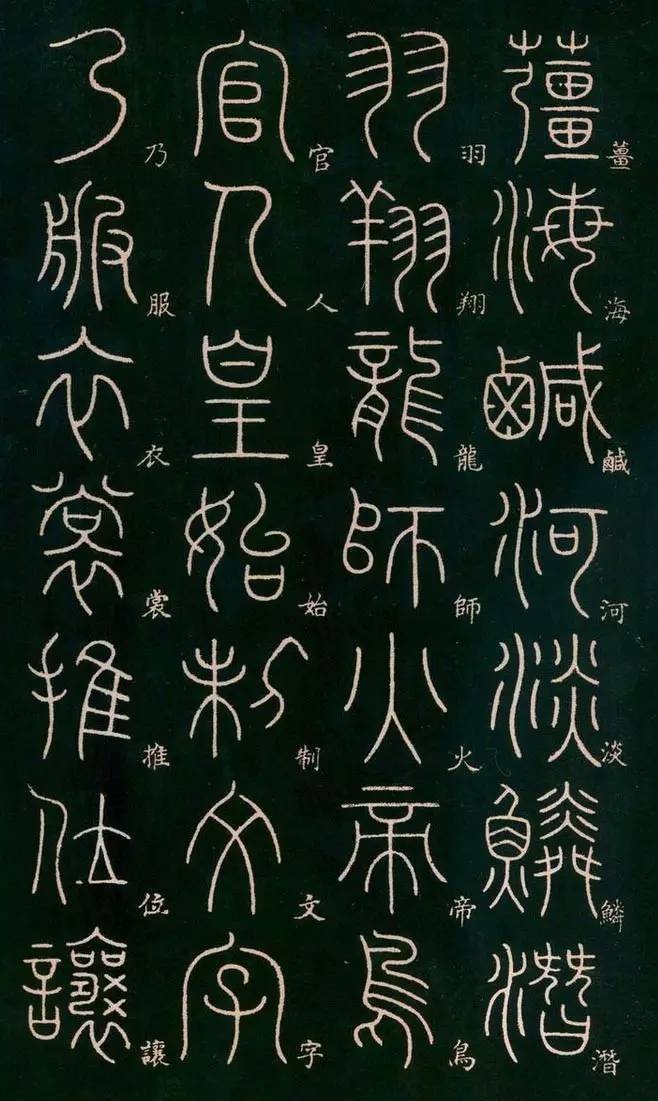 薑海鹹河淡鱗潛
羽翔龍師火帝鳥
官人皇始制文字
乃服衣裳推位讓